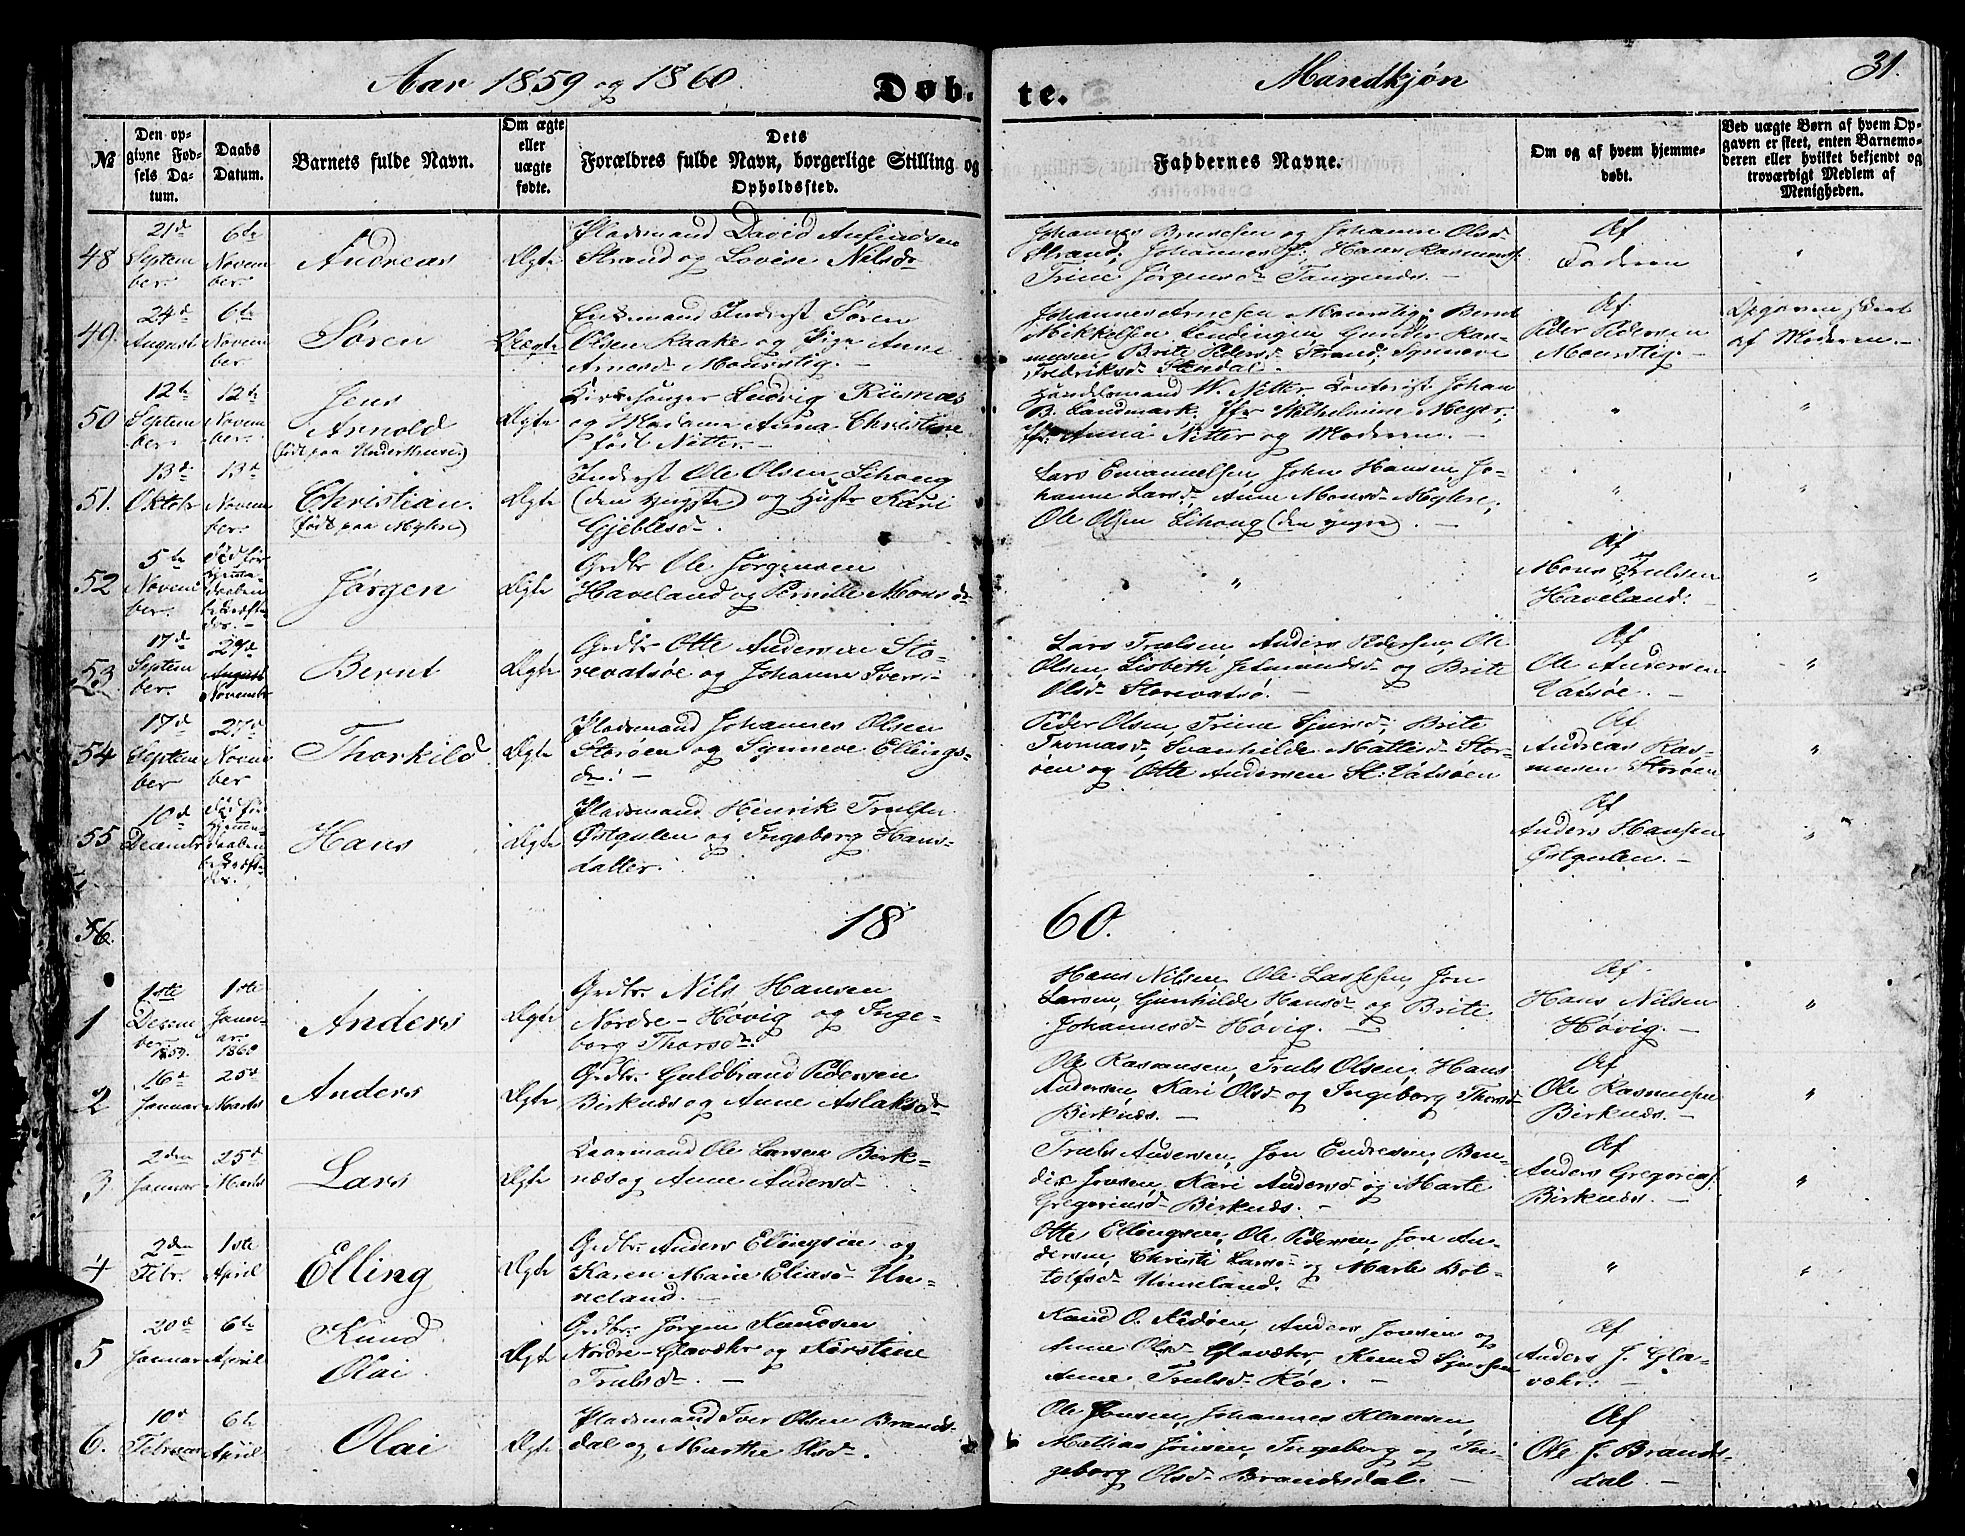 Aar 1859 og 1860.
Døb-
te.
Mandkjøn
31.
№
Den op-
givne Fød-
sels Da-
tum.
Daabs
Datum.
Barnets fulde Navn.
Om ægte
eller
uægte
fødte.
Dets
Forældres fulde Navn, borgerlige Stilling og
Opholdssted.
Faddernes Navne.
Om og af hvem hjemme-
døbt.
Ved uægte Børn af hvem Op-
gaven er skeet, enten Barnemo-
deren eller hvilket bekjendt og
troværdigt Medlem af
Menigheden.
48
21d
Septem
ber.
6te
Novem
ber
Andreas
Ægte
Pladsmand David
Strand og Lovise Nilsdr
Johannes og Johanne Olsd
Strand, Johannes J. Hans Rasmuss.
Trine Jørgensd Tangenæs. –
Af
Faderen
"
49.
24d
August
6te
Novem
ber.
Søren
Uægte
Enkemand Inderst Søren
Olsen Raake og Pige Anne
Arnesd Mourstig. –
Johannes Arnesen Mourstig, Bernt
Mikkelsen Gunder Ras-
musen Brite Pedersd Strand, Synneve
Fredriksd Stendal.
Af
Peder Pedersen
Mourstig. –
Opgaven skeet
af Moderen. –
50
12te
Septem
ber.
12te
Novem
ber.
Jens
Arnold
(født paa )
Ægte
Kirkesanger Ludvig Riisnæs
og Madame Anna Christine
født Nitter. –
Handelsmand W. Nitter, Contorist Johan
B. Landmark, Jfr Wilhelmine Meyer,
Jfr. Anna Nitter og Moderen. –
"
"
51.
13de
Oktobr
13d
Novem
ber.
Christian.
(født paa Myhre)
Ægte
Inderst Ole Olsen Lihoug
(den yngste) og Hustr Kari
Gjeblesdr.
Lars Emanuelsen, John Hansen, Jo-
hanne Larsd, Anne Monsd Myhre,
Ole Olsen Lihoug (den yngre). –
"
"
52
5te
Novem
ber.
Død før
hjemme-
daaben
bekræfte-
des. –
Jørgen
Ægte
Grdbr Ole Jørgensen
Haveland og Pernille Monsdr
"
Af
Mons Trulsen
Haveland. –
"
53
17d
Septem
ber.
27d
August
Novembr
Bernt
Ægte
Grdbr Otte Andersen Sto-
revatsøe og Johanne Ivers-
Lars Trulsen, Anders Pedersen, Ole
Olsen, Lisbeth Jetmundsd og Brite
Olsd Storevatsø. –
Af
Ole Andersen
Vatsøe. –
"
54
17d
Septem
ber
27d
Novem
ber
Thorkild
Ægte
Pladsmand Johannes Olsen
Storøen og Synneve Ellings-
dr. –
Peder Olsen, Trine Sjursd, Brite
Thomasd, Svanhilde Mathisd Stor-
øen og Otte Andersen St. Vatsøen
Af
Andreas Ras-
musen Storøen
"
55
10d
Decembr
død før
hjemme-
daaben
bekræfte-
des.
Hans
Ægte
Pladsmand Henrik Trulsen
Østgulen og Ingeborg Hans-
datter.
Af
Anders Hansen
Østgulen. –
"
56.
18
60.
1
1ste
Decem
ber
1859.
1ste
Janu-
ar.
1860
Anders
Ægte
Grdbr. Nils Hansen
Nordre-Høvig og Inge-
borg Thorsdr.
Hans Nilsen, Ole Lassesen, Jon
Larsen, Gunhilde Hansd og Brite
Johannesd Høvig. –
Af
Hans Nilsen
Høvig. –
"
2
16d
Januar
25d
Marts
Anders
Ægte
Grdbr. Guldbrand Pedersen
Birknæs og Anne Aslaksdr
Ole Rasmusen, Truls Olsen, Hans
Andersen, Kari Olsd og Ingeborg Thorsd
Birknæs. –
Af
Ole Rasmusen
Birknæs. –
"
3
2den
Januar
25d
Marts
Lars
Ægte
Kaarmand Ole Larsen Birk-
næs og Anne Andersdr
Truls Andersen, Jon Endresen, Ben-
dix Jonsen, Kari Andersd og Marte
Gregoriusd Birknæs. –
Af
Anders Gregorius.
Birknæs. –
"
4
2den
Febr.
1ste
April
Elling
Ægte
Grdbr. Anders Ellingsen og
Karen Marie Eliasd Un-
neland. –
Otte Ellingsen, Ole Pedersen, Jon An-
dersen, Christi Larsd og Marte Bot-
tolfsd Unneland. –
"
"
5
20d
Januar
6te
April
Knud
Olai
Ægte
Grdbr. Jørgen Knudsen
Nordre-Glavær og Kirstine
Trulsdr. –
Knud O. Anders Jonsen og
Anne Olsd Glavær, Knud Sjursen
Anne Trulsd Røe. –
Af
Anders J. Gla-
vær. –
6.
10d
Februar
6te
April
Olai
Ægte
Pladsmand Iver Olsen Brands-
dal og Marthe Olsdr.
Ole Jonsen, Johannes Klausen,
Mathias Jonsen, Ingeborg og In-
geborg Olsd Brandsdal. –
Af
Ole J. Brands-
dal. –